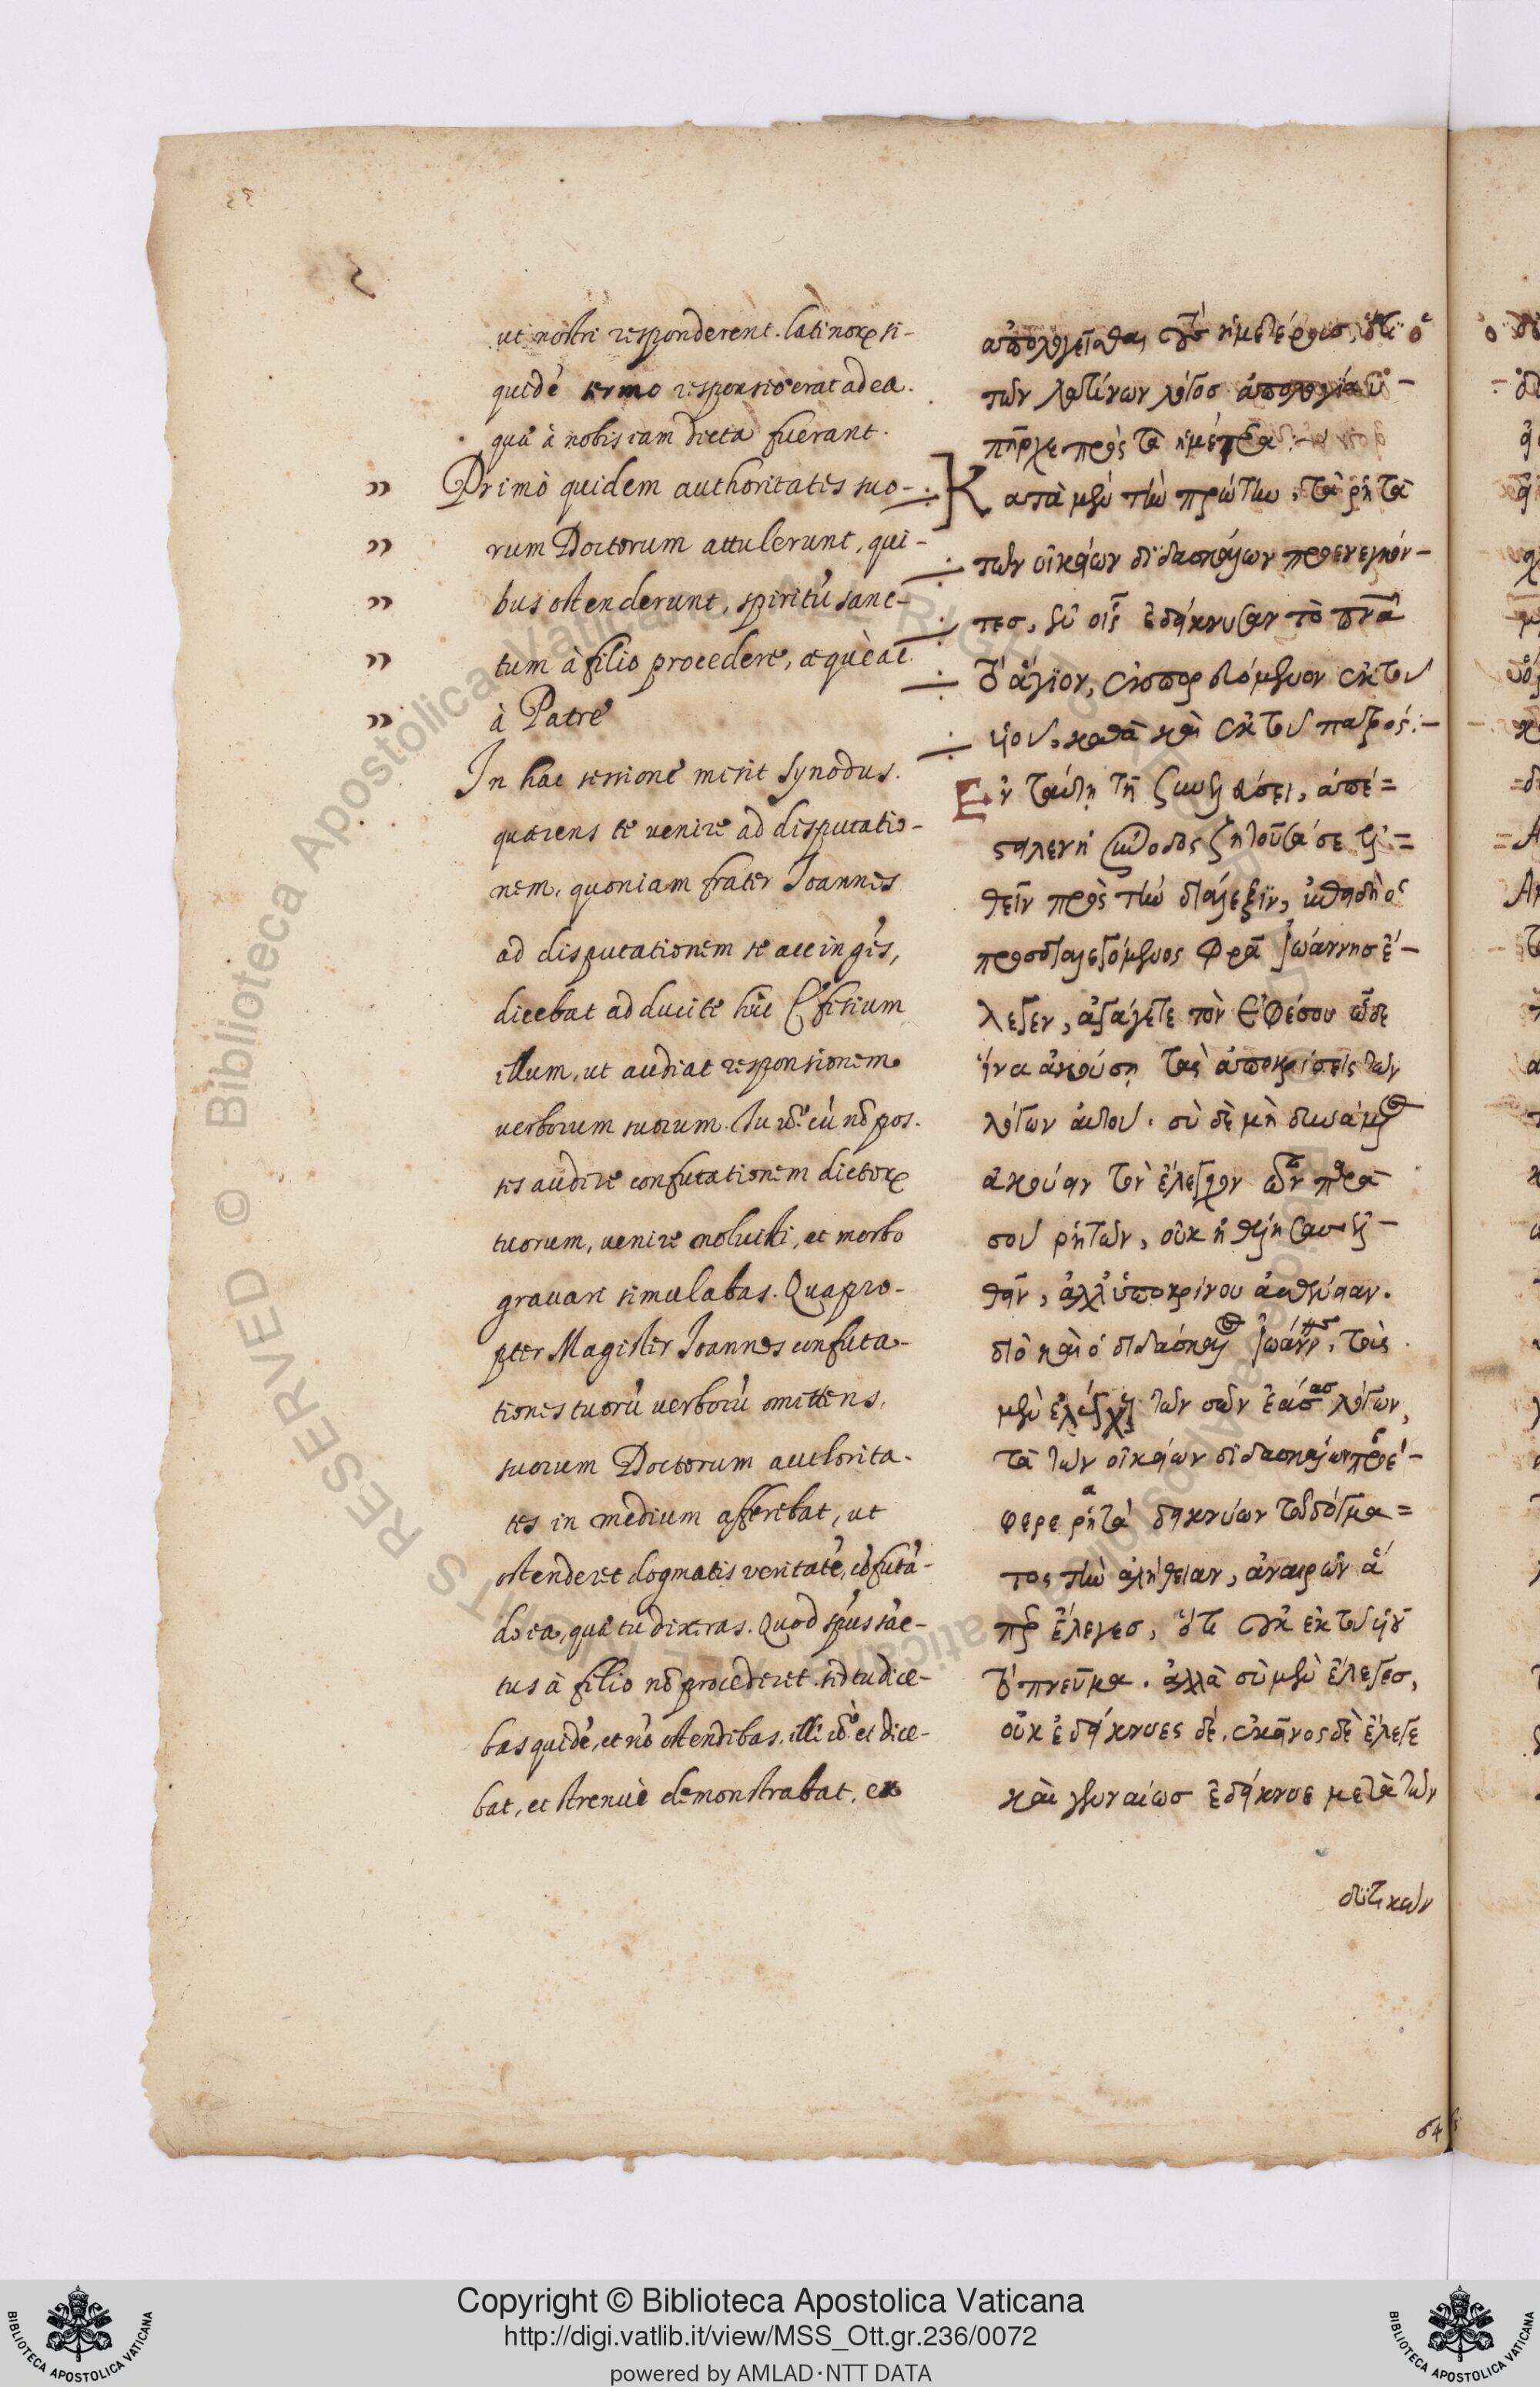 ut nostri responderent. latinorꝝ si-
quidẽ sermo responsio erat ad ea.
quæ à nobis iam dicta fuerant.
Primò quidem authoritates suo-
rum Doctorum attulerunt, qui-
bus ostenderunt, spiritũ sanc-
tum à filio procedere, æquè ac
à Patre
In hac sessione misit Synodus.
quærens te venire ad disputatio-
nem, quoniam frater Joannes
ad disputationem se accingẽs,
dicebat adducite hùc Ephesium
illum, ut audiat responsionem
verborum suorum. Tu
audire confutationem dictorꝝ
tuorum, venire noluisti, et morbo
gravari simulabas. Quapro-
pter Magister Joannes confuta-
tiones tuorũ verborũ omittens,
suorum Doctorum authorita-
tes in medium afferebat, ut
ostenderet dogmatis veritatẽ, cõfutã-
do ea, quæ tu dixeras. Quod spũs sãc-
tus à filio nõ procederet. sed tu dice-
bas quidẽ, et nõ ostendebas. ille et dice-
bat, et strenuè demonstrabat, ex
ἀπολογεῖσθαι τοῖς ἡμετέροις, ὅτι ὁ
τῶν λατίνων λόγος ἀπολογία ὑ-
πῆρχε πρὸς τὰ ἡμέτερα
Κατὰ μὲν τὴν πρώτην, τὰ ῥητὰ
τῶν οἰκείων διδασκάλων προενεγκόν-
τες, ἐν οἷς ἐδείκνυσαν τὸ πνᾶ
τὸ ἅγιον, ἐκπορευόμενον ἐκ τοῦ
υἱοῦ, καθὰ καὶ ἐκ τοῦ πατρός:-
Ἐν ταύτῃ τῇ συνελεύσει, ἀπέ=
σταλεν ἡ σύνοδος ζητοῦσά σε ἐλ=
θεῖν πρὸς τὴν διάλεξιν, ὁ
προσδιαλεγόμενος Φρὰ Ἰωάννης ἔ-
λεγεν, ἀγάγετε τὸν Ἐφέσου ὧδε
ἵνα ἀκούσῃ τὰς ἀποκρίσεις τῶν
λόγων αὐτοῦ. σὺ δὲ μὴ δυνάμενος
ἀκούειν τὸν ἔλεγχον τῶν παρὰ
σοῦ ῥητῶν, οὐκ ἠθέλησας ἐλ-
θεῖν, ἀλλ' ὑποκρίνου ἀσθένειαν.
διὸ καὶ ὁ διδάσκαλος Ἰωάννης, τοὺς
μὲν ἐλέγχους τῶν σῶν ἐάσας λόγων,
τὰ τῶν οἰκείων διδασκάλων προέ-
φερε ῥητὰ δεικνύων τοῦ δόγμα=
τος τὴν ἀλήθειαν, ἀναιρῶν ἅ
περ ἔλεγες, ὅτι οὐκ ἐκ τοῦ υἱοῦ
τὸ πνεῦμα. ἀλλὰ σὺ μὲν ἔλεγες,
οὐκ ἐδείκνυες δέ. ἐκεῖνος δὲ ἔλεγε
καὶ γενναίως ἐδείκνυε μετὰ τῶν
δυτικῶν
64
Copyright © Biblioteca Apostolica Vaticana
http://digi.vatlib.it/view/MSS_Ott.gr.236/0072
powered by AMLAD·NTT DATA